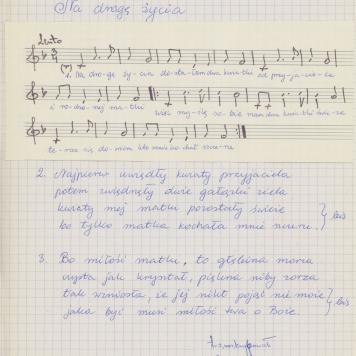 Na drogę życia
Lento
1. Na dro-gę ży-cia do-sta-łam dwa kwia-tki od przy-ja-cie-la
i ro-dzo-nej ma-tki
te-raz się
2. Najpierw uwiędły kwiaty przyjaciela
potem uwiędnęły dwie gałązki ziela
kwiaty mej matki pozostały świeże
bo tylko matka kochała mnie szczerze. } bis
3. Bo miłość matki, to głębina morza
czysta jak kryształ, piękna niby zorza
tak wzniosła, że jej nikt pojąć nie może
jaka być musi miłość twa o Boże. } bis